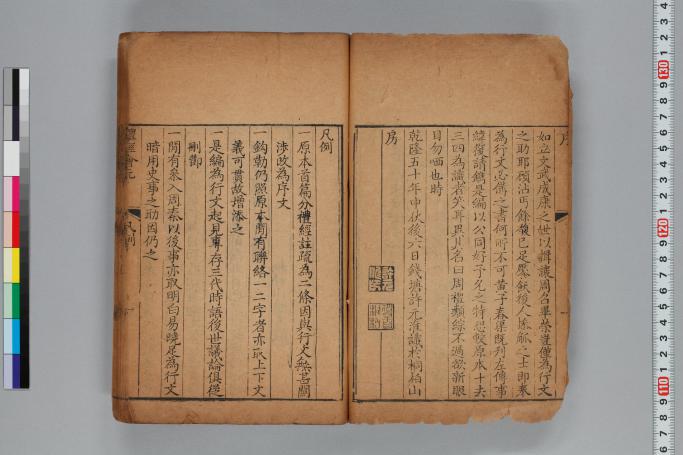 如立文武成康之世以
周名畢榮豈僅為行文
之助耶顧沾丐餘馥已足
後人
之士即奉
為行文必備之書何所不可黃子春渠既列左傳事
緯復請鐫是編以公同好予允之特
原本十去
三四為讀者笑耳異其名曰周禮類綜不過欲新眼
目勿哂也時
乾隆五十年中伏後六日錢塘許元淮識於桐柏山
房
凡例
一原本首篇分禮經註疏為二條因與行文無甚關
涉改為序文
一鈎勒仍照原本間有聯絡一二字者亦取上下文
義可貫故增添之
一是編為行文起見專存三代時語後世議論俱從
刪節
一間有彖入周秦以後事亦取明白易曉足為行文
暗用史事之助因仍之
凡例